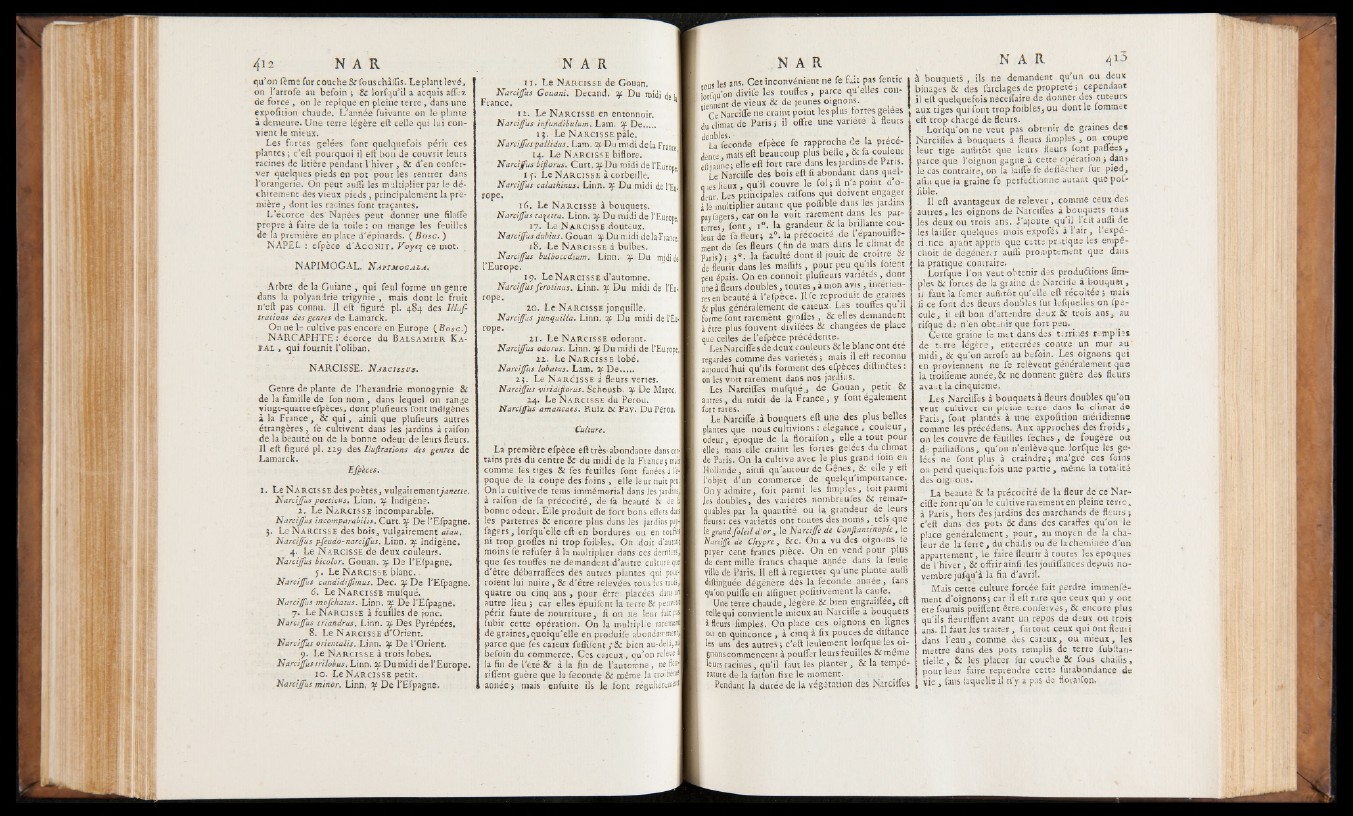 412 NAR
qu'on ſème ſur couche & ſous châſſis. Le plant levé,
on l'arroſe au beſoin ; & lorſqu'il a acquis aſſez
de force, on le repique en pleine terre, dans une
expoſition chaude. L'année ſuivante on le plante
à demeure. Une terre légère eſt celle qui lui con-
vient le mieux.
Les fortes gelées font quelquefois périr ces
plantes ; c'eſt pourquoi il eſt bon de couvrir leurs
racines de litière pendant l'hiver, & d'en conſer-
ver quelques pieds en pot pour les rentrer dans
l'orangerie. On peut auſſi les multiplier par le dé-
chirement des vieux pieds, principalement la pre-
mière, dont les racines ſont traçantes.
L'écorce des Napées peut donner une filaſſe
propre à faire de la toile : on mange les feuilles
de la première en place d'épinards. (Bosc.)
NAPEL : eſpèce d'ACONIT. Voyez ce mot.
NAPIMOGAL. NAPIMOGALA.
Arbre de la Guiane, qui ſeul forme un genre
dans la polyandrie trigynie, mais dont le fruit
n'eſt pas connu. Il eſt figuré pl. 484 des Illuſ-
trations des genres de Lamarck.
On ne le cultive pas encore en Europe (Bosc.)
NARCAPHTE : écorce du BALSAMIER KA-
FAL, qui fournit l'oliban.
NARCISSE. NARCISSUS.
Genre de plante de l'hexandrie monogynie &
de la famille de ſon nom, dans lequel on range
vingt-quatre eſpèces, dont pluſieurs ſont indigènes
à la France, & qui, ainſi que pluſieurs autres
étrangères, ſe cultivent dans les jardins à raiſon
de la beauté ou de la bonne odeur de leurs fleurs.
Il eſt figuré pl. 229 des Illuſtrations des genres de
Lamarck.
Eſpèces.
1. Le NARCISSE des poètes, vulgairement janette.
Narciſſus poeticus. Linn. ♃ Indigène.
2. Le NARCISSE incomparable.
Narciſſus incomparabilis. Curt. ♃ De l'Eſpagne.
3. Le NARCISSE des bois, vulgairement aiau.
Narciſſus pſeudo-narciſſus. Linn. ♃ Indigène.
4. Le NARCISSE de deux couleurs.
Narciſſus bicolor. Gouan. ♃ De l'Eſpagne.
5. Le NARCISSE blanc.
Narciſſus candidiſſimus. Dec. ♃ De l'Eſpagne.
6. Le NARCISSE muſqué.
Narciſſus moſchatus. Linn. ♃ De l'Eſpagne.
7. Le NARCISSE à feuilles de jonc.
Narciſſus triandrus. Linn. ♃ Des Pyrénées.
8. Le NARCISSE d'Orient.
Narciſſus orientalis. Linn. ♃ De l'Orient.
9. Le NARCISSE à trois lobes.
Narciſſus trilobus. Linn. ♃ Du midi de l'Europe.
10. Le NARCISSE petit.
Narciſſus minor. Linn. ♃ De l'Eſpagne.
NAR
11. Le NARCISSE de Gouan.
Narciſſus Gouani. Decand. ♃ Du midi de la
France.
12. Le NARCISSE en entonnoir.
Narciſſus infundibulum. Lam. ♃ De.....
13. Le NARCISSE pâle.
Narciſſus pallidus. Lam. ♃ Du midi de la France.
14. Le NARCISSE biflore.
Narciſſus biflorus. Curt. ♃ Du midi de l'Europe.
15. Le NARCISSE à corbeille.
Narciſſus calathinus. Linn. ♃ Du midi de l'Eu-
rope.
16. Le NARCISSE à bouquets.
Narciſſus tazetta. Linn. ♃ Du midi de l'Europe.
17. Le NARCISSE douteux.
Narciſſus dubius. Gouan. ♃ Du midi de la France.
18. Le NARCISSE à bulbes.
Narciſſus bulbocodium. Linn. ♃ Du midi de
l'Europe.
19. Le NARCISSE d'automne.
Narciſſus ſerotinus. Linn. ♃ Du midi de l'Eu-
rope.
20. Le NARCISSE jonquille.
Narciſſus junquilla. Linn. ♃ Du midi de l'Eu-
rope.
21. Le NARCISSE odorant.
Narciſſus odorus. Linn. ♃ Du midi de l'Europe.
22. Le NARCISSE lobé.
Narciſſus lobatus. Lam. ♃ De.....
23. Le NARCISSE à fleurs vertes.
Narciſſus viridiflorus. Schousb. ♃ De Maroc.
24. Le NARCISSE du Pérou.
Narciſſus amancaes. Ruiz & Pav. Du Pérou.
Culture.
La première eſpèce eſt très-abondante dans cer-
tains prés du centre & du midi de la France ; mais
comme ſes tiges & ſes feuilles ſont fanées à l'é-
poque de la coupe des foins, elle leur nuit peu.
On la cultive de tems immémorial dans les jardins,
à raiſon de ſa précocité, de ſa beauté & de ſa
bonne odeur. Elle produit de fort bons effets dans
les parterres & encore plus dans les jardins pay-
ſagers, lorſqu'elle eſt en bordures ou en touffes
ni trop groſſes ni trop foibles. On doit d'autant
moins ſe refuſer à la multiplier dans ces derniers,
que ſes touffes ne demandent d'autre culture que
d'être débarraſſées des autres plantes qui pour-
roient lui nuire, & d'être relevées tous les trois,
quatre ou cinq ans, pour être placées dans un
autre lieu ; car elles épuiſent la terre & peuvent
périr faute de nourriture, ſi on ne leur fait pas
ſubir cette opération. On la multiplie rarement
de graines, quoiqu'elle en produiſe abondamment,
parce que ſes caïeux ſuffiſent, & bien au-delà, au
beſoin du commerce. Ces caïeux, qu'on relève à
la fin de l'été & à la fin de l'automne, ne fleu-
riſſent guère que la ſeconde & même la troiſième
année ; mais enſuite ils le font régulièrement
NAR
tous les ans. Cet inconvénient ne ſe fait pas ſentir
lorſqu'on diviſe les touffes, parce qu'elles con-
tiennent de vieux & de jeunes oignons.
Ce Narciſſe ne craint point les plus fortes gelées
du climat de Paris ; il offre une variété à fleurs
doubles.
La ſeconde eſpèce ſe rapproche de la précé-
dente, mais eſt beaucoup plus belle, & ſa couleur
eſt jaune ; elle eſt fort rare dans les jardins de Paris.
Le Narciſſe des bois eſt ſi abondant dans quel-
ques lieux, qu'il couvre le ſol ; il n'a point d'o-
deur. Les principales raiſons qui doivent engager
à le multiplier autant que poſſible dans les jardins
payſagers, car on le voit rarement dans les par-
terres, ſont, 1°. la grandeur & la brillante cou-
leur de ſa fleur ; 2°. la précocité de l'épanouiſſe-
ment de ſes fleurs (fin de mars dans le climat de
Paris) ; 3°. la faculté dont il jouit de croître &
de fleurir dans les maſſifs, pour peu qu'ils ſoient
peu épais. On en connoît pluſieurs variétés, dont
une à fleurs doubles, toutes, à mon avis, inférieu-
res en beauté à l'eſpèce. Il ſe reproduit de graines
& plus généralement de caïeux. Les touffes qu'il
forme ſont rarement groſſes, & elles demandent
à être plus ſouvent diviſées & changées de place
que celles de l'eſpèce précédente.
Les Narciſſes de deux couleurs & le blanc ont été
regardés comme des variétés ; mais il eſt reconnu
aujourd'hui qu'ils forment des eſpèces diſtinctes :
on les voit rarement dans nos jardins.
Les Narciſſes muſqué, de Gouan, petit &
autres, du midi de la France, y ſont également
fort rares.
Le Narciſſe à bouquets eſt une des plus belles
plantes que nous cultivions : élégance, couleur,
odeur, époque de la floraiſon, elle a tout pour
elle ; mais elle craint les fortes gelées du climat
de Paris. On la cultive avec le plus grand ſoin en
Hollande, ainſi qu'autour de Gênes, & elle y eſt
l'objet d'un commerce de quelqu'importance.
On y admire, ſoit parmi les ſimples, ſoit parmi
les doubles, des variétés nombreuſes & remar-
quables par la quantité ou la grandeur de leurs
fleurs : ces variétés ont toutes des noms, tels que
le grand ſoleil d'or, le Narciſſe de Conſtantinople, le
Narciſſe de Chypre, &c. On a vu des oignons ſe
payer cent francs pièce. On en vend pour plus
de cent mille francs chaque année dans la ſeule
ville de Paris. Il eſt à regretter qu'une plante auſſi
diſtinguée dégénère dès la ſeconde année, ſans
qu'on puiſſe en aſſigner poſitivement la cauſe.
Une terre chaude, légère & bien engraiſſée, eſt
celle qui convient le mieux au Narciſſe à bouquets
à fleurs ſimples. On place ces oignons en lignes
ou en quinconce, à cinq à ſix pouces de diſtance
les uns des autres ; c'eſt ſeulement lorſque les oi-
gnons commencent à pouſſer leurs feuilles & même
leurs racines, qu'il faut les planter, & la tempé-
rature de la ſaiſon fixe le moment.
Pendant la durée de la végétation des Narciſſes
NAR 413
à bouquets, ils ne demandent qu'un ou deux
binages & des ſarclages de propreté ; cependant
il eſt quelquefois néceſſaire de donner des tuteurs
aux tiges qui ſont trop foibles, ou dont le ſommet
eſt trop chargé de fleurs.
Lorſqu'on ne veut pas obtenir de graines des
Narciſſes à bouquets à fleurs ſimples, on coupe
leur tige auſſitôt que leurs fleurs ſont paſſées,
parce que l'oignon gagne à cette opération ; dans
le cas contraire, on la laiſſe ſe deſſécher ſur pied,
afin que la graine ſe perfectionne autant que poſ-
ſible.
Il eſt avantageux de relever, comme ceux des
autres, les oignons de Narciſſes à bouquets tous
les deux ou trois ans. J'ajoute qu'il l'eſt auſſi de
les laiſſer quelques mois expoſés à l'air, l'expé-
rience ayant appris que cette pratique les empê-
choit de dégénérer auſſi promptement que dans
la pratique contraire.
Lorſque l'on veut obtenir des productions ſim-
ples & fortes de la graine de Narciſſe à bouquet,
il faut la ſemer auſſitôt qu'elle eſt récoltée ; mais
ſi ce ſont des fleurs doubles ſur leſquelles on ſpé-
cule, il eſt bon d'attendre deux & trois ans, au
riſque de n'en obtenir que fort peu.
Cette graine ſe met dans des terrines remplies
de terre légère, enterrées contre un mur au
midi, & qu'on arroſe au beſoin. Les oignons qui
en proviennent ne ſe relèvent généralement que
la troiſième année, & ne donnent guère des fleurs
avant la cinquième.
Les Narciſſes à bouquets à fleurs doubles qu'on
veut cultiver en pleine terre dans le climat de
Paris, ſont plantés à une expoſition méridienne
comme les précédens. Aux approches des froids,
on les couvre de feuilles ſèches, de fougère ou
de paillaſſons, qu'on n'enlève que lorſque les ge-
lées ne ſont plus à craindre ; malgré ces ſoins
on perd quelquefois une partie, même la totalité
des oignons.
La beauté & la précocité de la fleur de ce Nar-
ciſſe font qu'on le cultive rarement en pleine terre,
à Paris, hors des jardins des marchands de fleurs ;
c'eſt dans des pots & dans des caraffes qu'on le
place généralement, pour, au moyen de la cha-
leur de la ſerre, du châſſis ou de la cheminée d'un
appartement, le faire fleurir à toutes les époques
de l'hiver, & offrir ainſi des jouiſſances depuis no-
vembre juſqu'à la fin d'avril.
Mais cette culture forcée fait perdre immenſé-
ment d'oignons ; car il eſt rare que ceux qui y ont
été ſoumis puiſſent être conſervés, & encore plus
qu'ils fleuriſſent avant un repos de deux ou trois
ans. Il faut les traiter, ſurtout ceux qui ont fleuri
dans l'eau, comme des caïeux, ou mieux, les
mettre dans des pots remplis de terre ſubſtan-
tielle, & les placer ſur couche & ſous châſſis,
pour leur faire reprendre cette ſurabondance de
vie, ſans laquelle il n'y a pas de floraiſon.